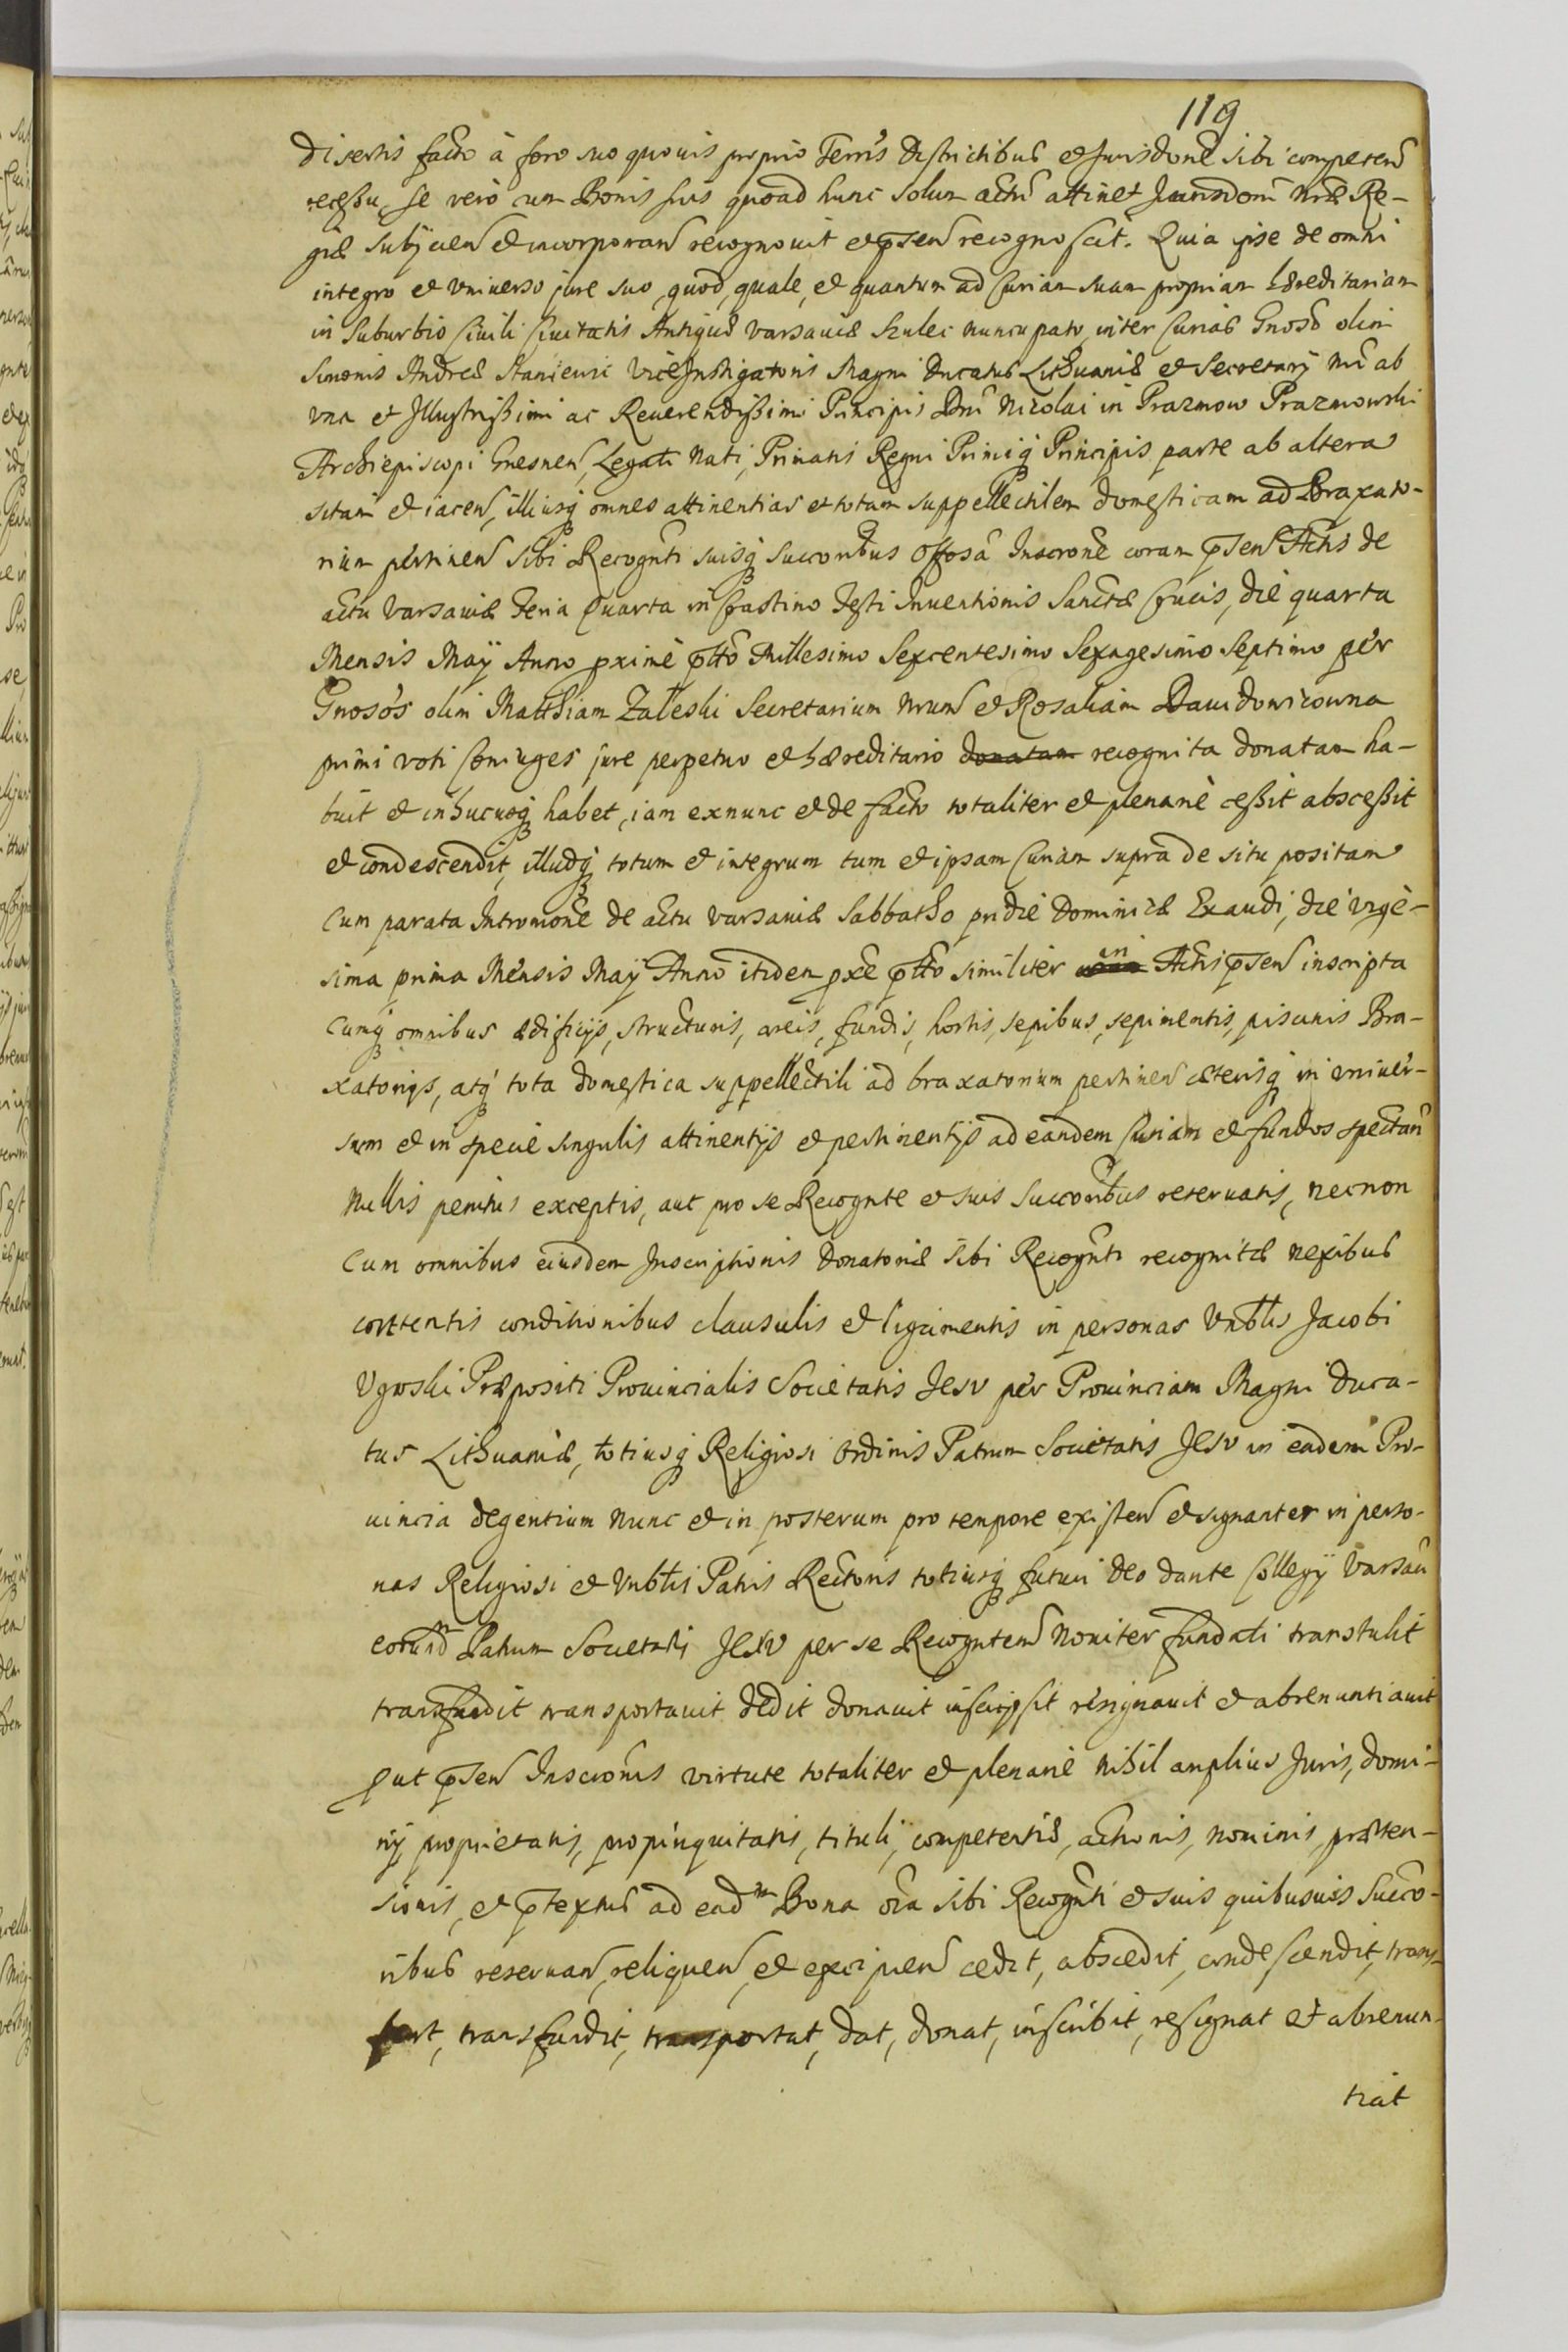 119
Disertis facto à foro suo quouis proprio Terris Districtibus et Jurisdone sibi competen
recessu, se verò cum Bonis suis quoad hunc solum actu attinet Jurisdoni nrae Re-
giae subijcien et incorporan recognouit et psen recognoscit. Quia ipse de omni
integro et vniuerso jure suo, quod, quale, et quantum ad Curiam suam propriam haereditariam
in Suburbio Ciuili Ciuitatis Antiquae Varsauiae Szulec nuncupato inter Curias Gnosd olim
Simonis Andreae Staniewic ViceInstigatoris Magni Ducatus Lithuaniae et Secretarij nri ab
vna et Jllustrissimi ac Reuerendissimi Principis Dni Nicolai in Prazmow Prazmowski
Archiepiscopi Gnesnen, Legati Nati, Primatis Regni Primiq Principis parte ab altera
sitam et iacen, illiusq omnes attinentias et totam suppellectilem domesticam ad Braxato-
rium pertinen sibi Recognti suisq succoribus Offosa Inscrone coram psen Actis de
actu Varsauiae Feria Quarta in Crastino Festi Inuentionis Sanctae Crucis, die quarta
Mensis Maij Anno proximè ptto Millesimo Sexcentesimo Sexagesimo Septimo per
Gnosos olim Matthiam Zaleski Secretarium nrum et Rosaliam Dawidowicowna
primi voti Coniuges jure perpetuo et haereditario donatam recognita donatam ha-
buit et inhucusq habet, iam exnunc et de facto totaliter et plenariè cessit abscessit
et condescendit, illudq totum et integrum tum et ipsam Curiam supra de situ positam
Cum parata Intromone de actu Varsauiae Sabbatho pridie Dominicae Exaudi, die vige-
sima prima Mensis Maij Anno itidem pxe ptto similiter in Actis psen inscripta
Cumq omnibus aedificijs, structuris, areis, fundis, hortis, sepibus, sepimentis, piscinis Bra-
xatorijs, atq tota domestica suppellectili ad braxatorium pertinen caeterisq in vniuer-
sum et in specie singulis attinentijs et pertinentijs ad eandem Curiam et fundos spectan
Nullis penitus exceptis, aut pro se Recognte et suis succoribus reseruatis, necnon
Cum omnibus eiusdem Inscriptionis Donatoriae sibi Recognti recognitae nexibus
contentis conditionibus clausulis et ligamentis in personas Vnblis Jacobi
Vgoski Praepositi Prouincialis Societatis Jesu per Prouinciam Magni Duca-
tus Lithuaniae, totiusq Religiosi Ordinis Patrum Societatis Jesu in eadem Pro-
uincia degentium nunc et in posterum pro tempore existen et signanter in perso-
nas Religiosi et Vnblis Patris Rectoris totiusq futuri Deo dante Collegij Varsau
eorundm Patrum Societatis Jesu per se Recognten nouiter fundati transtulit
transfudit transportauit dedit donauit inscripsit resignauit et abrenuntiauit
put psen Inscronis virtute totaliter et plenarie nihil amplius Juris, domi-
nij proprietatis, propinquitatis, tituli, competentiae, actionis, nominis, praeten-
sionis, et ptextus ad eadm Bona oia sibi Recognti et suis quibusuis Succo-
ribus reseruan, reliquen et excipien cedit, abscedit, condescendit, trans-
fert, transfundit, transportat, dat, donat, inscribit, resignat et abrenun-
tiat